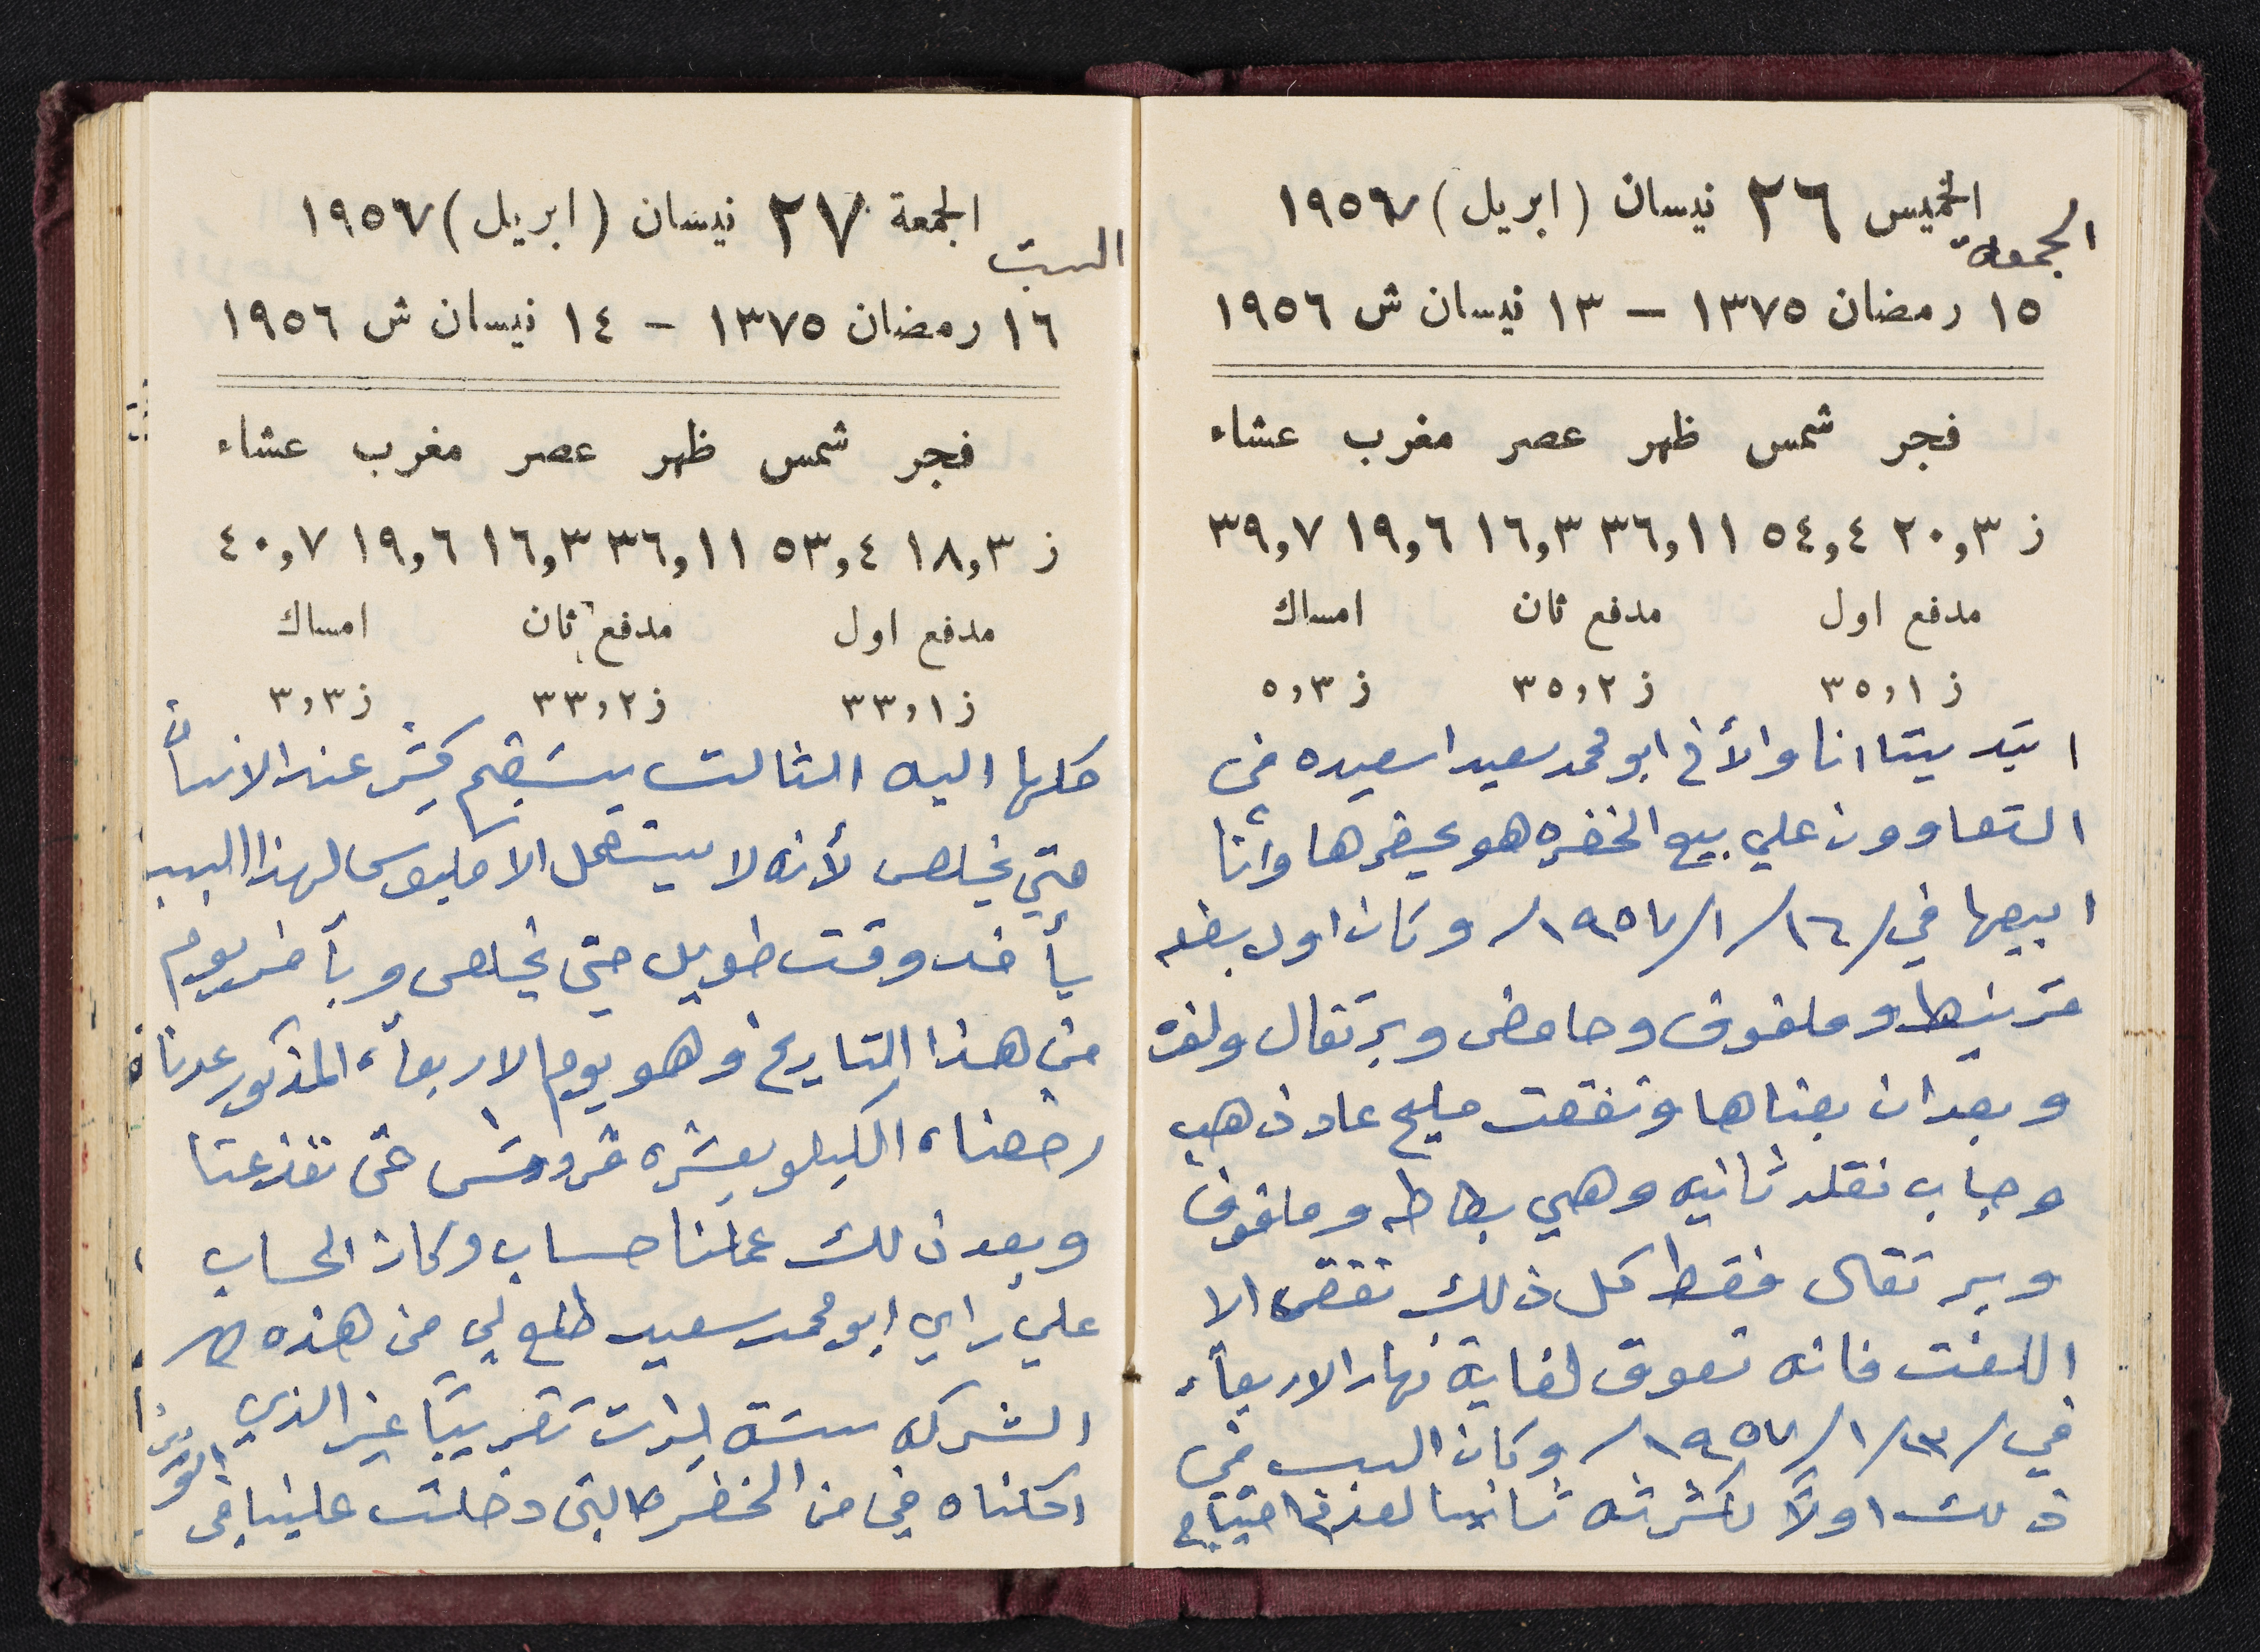 الخميس ٢٦ نيسان (ابريل) ١٩٥٦٧
الجمعة
١٥ رمضان ١٣٧٥ – ١٣ نيسان ش ١٩٥٦
فجر شمس ظهر عصر مغرب عشاء
ز ٢٠,٣ ٥٤,٤ ٣٦,١١ ١٦,٣ ١٩,٦ ٣٩,٧
مدفع اول مدفع ثان امساك
ز ٣٥,١ ز ٣٥,٢ ز ٥,٣
ابتديتا انا والأخ ابو محمد سعيد اسعيده في
التعاوون علي بيع الخضره هو يحضرها وأنا
ابيعها في /١٦/١/١٩٥٧/ وكان اول بضعه
قرنبيط وملفوف وحامض وبرتقال ولفت
وبعد ان بعناها ونفقت مليح عاد ذهب
وجاب نقله ثانيه وهي بطاطه وملفوف
وبرتقال فقط كل ذلك نفق الا
اللفت فانه تعوق لغاية نهار الاربعاء
في /٣٠/١/١٩٥٧/ وكان السبب في
ذلك اولاً لكثرته ثانيا لعدم احتياج
الجمعة ٢٧ نيسان (ابريل) ١٩٥٦٧
السبت
١٦ رمضان ١٣٧٥ – ١٤ نيسان ش ١٩٥٦
فجر شمس ظهر عصر مغرب عشاء
ز ١٨,٣ ٥٣,٤ ٣٦,١١ ١٦,٣ ١٩,٦ ٤٠,٧
مدفع اول مدفع ثان امساك
ز ٣٣,١ ز ٣٣,٢ ز ٣,٣
كلها اليه الثالت يستقيم كثير عند الانسان
حتي يخلص لأنه لا يستعمل الا مكبوس لهذا السبب
يأخد وقت طويل حتى يخلص وبآخر يوم
من هذا التاريخ وهو يوم الاربعاء المذكور عدنا
رخصناه الكيلو بعشره قروش حتى نفذ عنا
وبعد ذلك عملنا حساب وكان الحساب
علي راي ابو محمد سعيد طلع لي من هذه
الشركه ستة ليرات تقريبًا غير الذي
اكلناه من الخضره التي دخلت علينا في